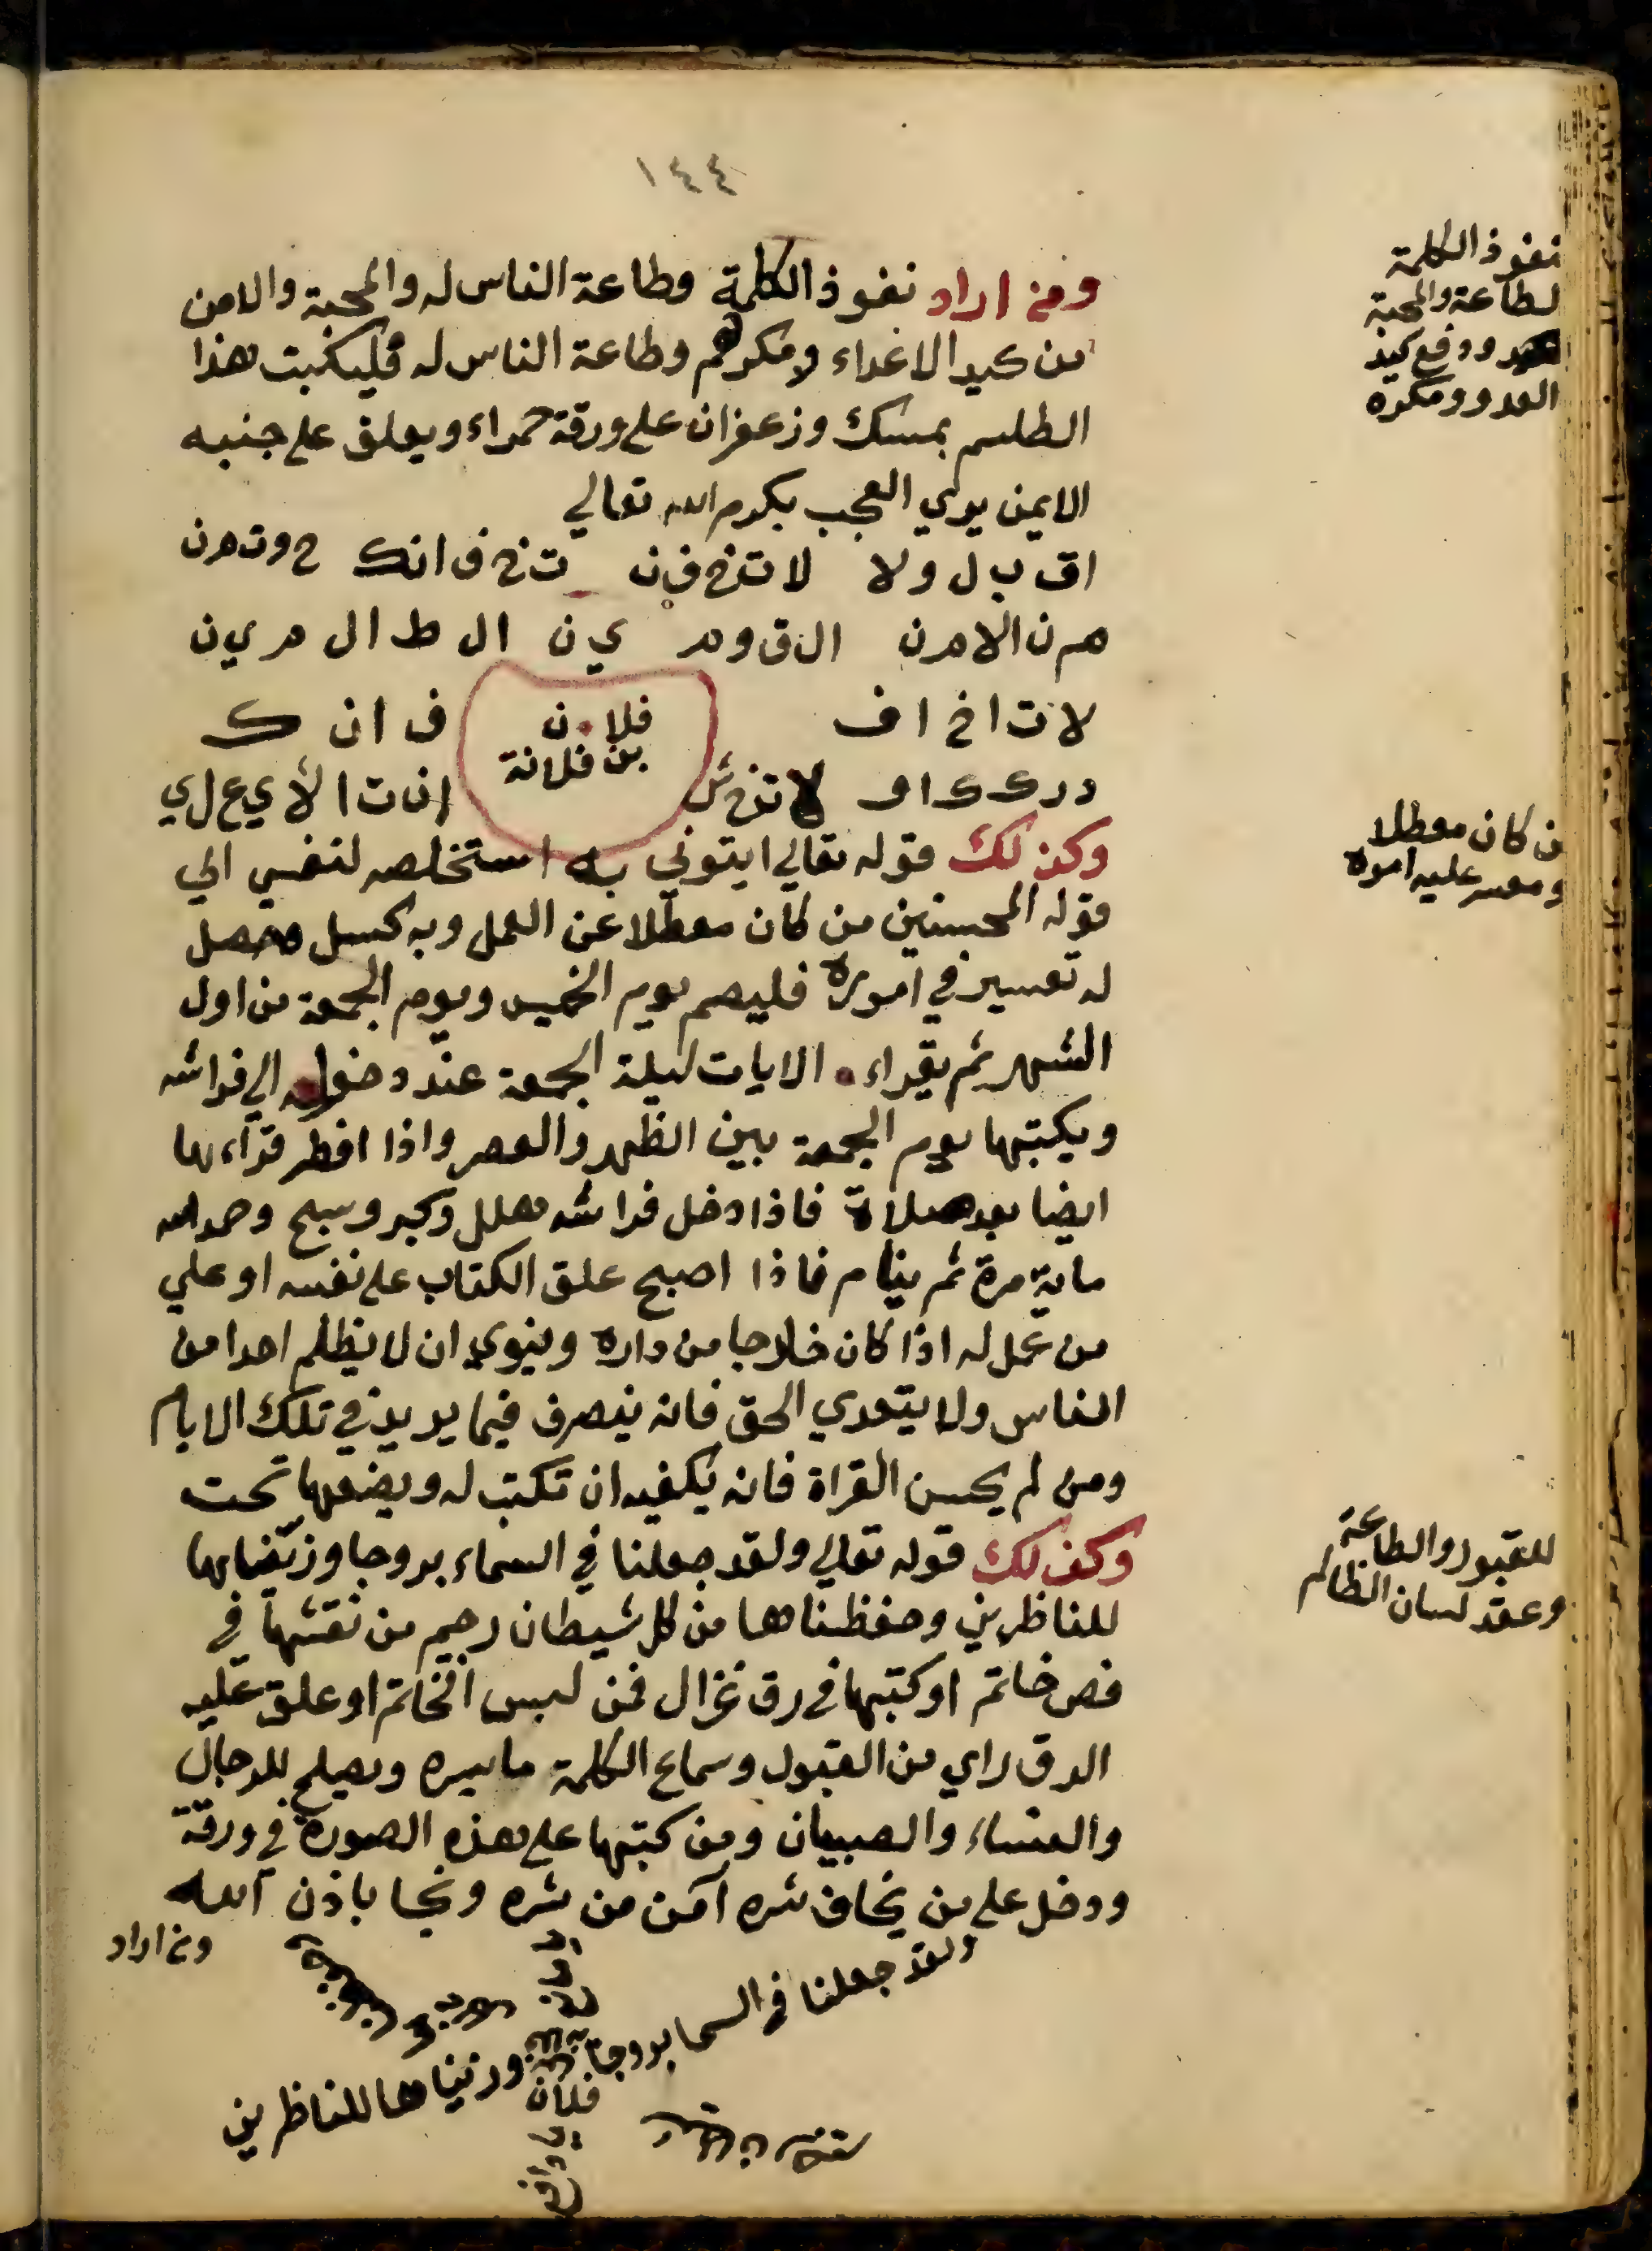 ١٤٤
ومن اراد نفوذ الكلمة وطاعة الناس له والمحبة والامن
من كيد الاعداء ومكرهم وطاعة الناس له فليكتب هذا
الطلسم بمسك وزعفران على ورقة حمراء ويعلق على جنبه
الايمن يري العجب بكرم الله تعالي
اق ب ل ولا لا ت خ ف ن ت خ ف انك
م ن الا م ن ال ق و م ي ن ال ظ ال م ي ن
لا ت ا خ ا ف فلان ف ان ك
بن فلانة
د ر ك ا و لا ت خ ش ا ن ت ا لأ ي ع ل ي
وكذلك قوله تعالي ايتوني به استخلصه لنفسي الي
قوله المحسنين من كان معطلا عن العمل وبه كسل وحصل
له تعسير في اموره فليصم يوم الخميس ويوم الجمعة من اول
الشهر ثم يقراء الايات ليلة الجمعة عند دخوله الي فراشه
ويكتبها يوم الجمعة بين الظهر والعصر واذا افطر قراءها
ايضا بعد صلاة فاذا دخل فراشه هلل وكبر وسبح وحمد الله
ماية مرة ثم ينام فاذا اصبح علق الكتاب على نفسه او علي
من عمل له اذا كان خارجا من داره وينوي ان لا يظلم احدا من
الناس ولا يتعدي الحق فانه ينصرف فيما يريد في تلك الايام
ومن لم يحسن القراة فانه يكفيه ان تكتب له ويضعها تحت
وكذلك قوله تعالي ولقد جعلنا في السماء بروجا وزيناها
للناظرين وحفظناها من كل شيطان رجيم من نقشها في
فص خاتم او كتبها في رق غزال فمن لبس الخاتم او علق عليه
الرق راي من القبول وسماع الكلمة ما يسره ويصلح للرجال
والنساء والصبيان ومن كتبها على هذه الصورة في ورقة
ودخل على من يخاف شره آمن من شره ونجا باذن الله
ومن اراد
ولقد جعلنا في السما بروجا وزيناها للناظرين
فلان
نفوذ الكلمة
لطاعة والمحبة
ودفع كيد
العدو ومكره
من كان معطلا
ومعسر عليه اموره
للقبول والطاعة
وعقد لسان الظالم